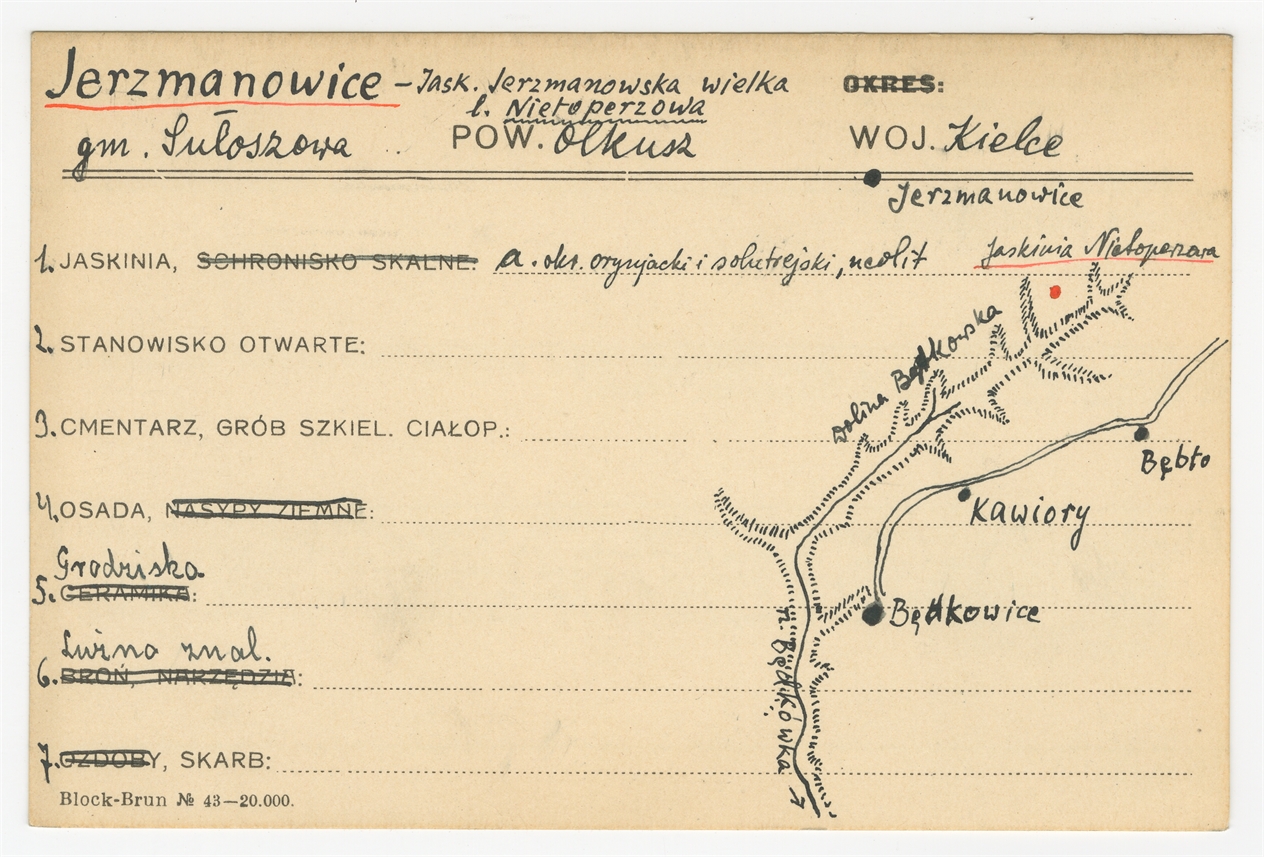 Jerzmanowice – Jask. Jerzmanowska wielka OKRES:
l. Nietoperzowa
gm. Sułoszowa POW. Olkusz WOJ. Kielce
Jerzmanowice
1. JASKINIA, SCHRONISKO SKALNE: a. okr. oryniacki i solutrejski, neolit
Jaskinia Nietoperzowa
2. STANOWISKO OTWARTE:
Dolina Będkowska
3. CMENTARZ, GRÓB SZKIEL. CIAŁOP.:
Bębło
4. OSADA, NASYPY ZIEMNE:
Kawiory
Grodziska
5. CERAMIKA:
Będkowice
Luźno znal.
6. BROŃ, NARZĘDZIA:
p. Będkówka
7. OZDOBY, SKARB:
Block-Brun № 43—20.000.